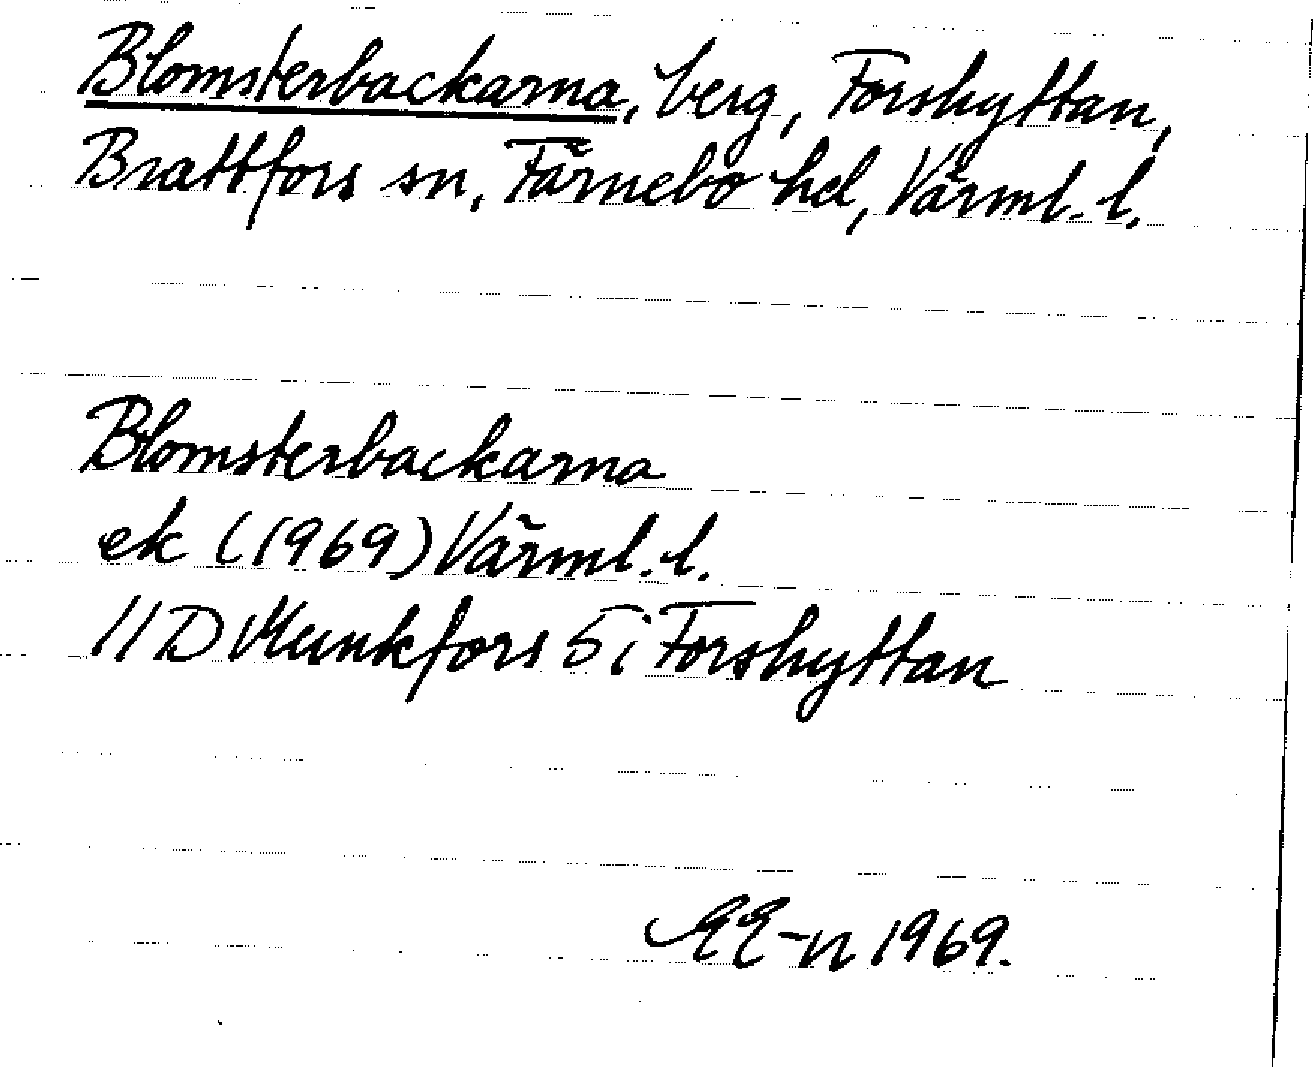 Blomsterbackarna, berg, Forshyttan,
Brattfors sn, Färnebo hd, Värml. l.
Blomsterbackarna
ek (1969) Värml. l.
11D Munkfors 5i Forshyttan
EE-n 1969.